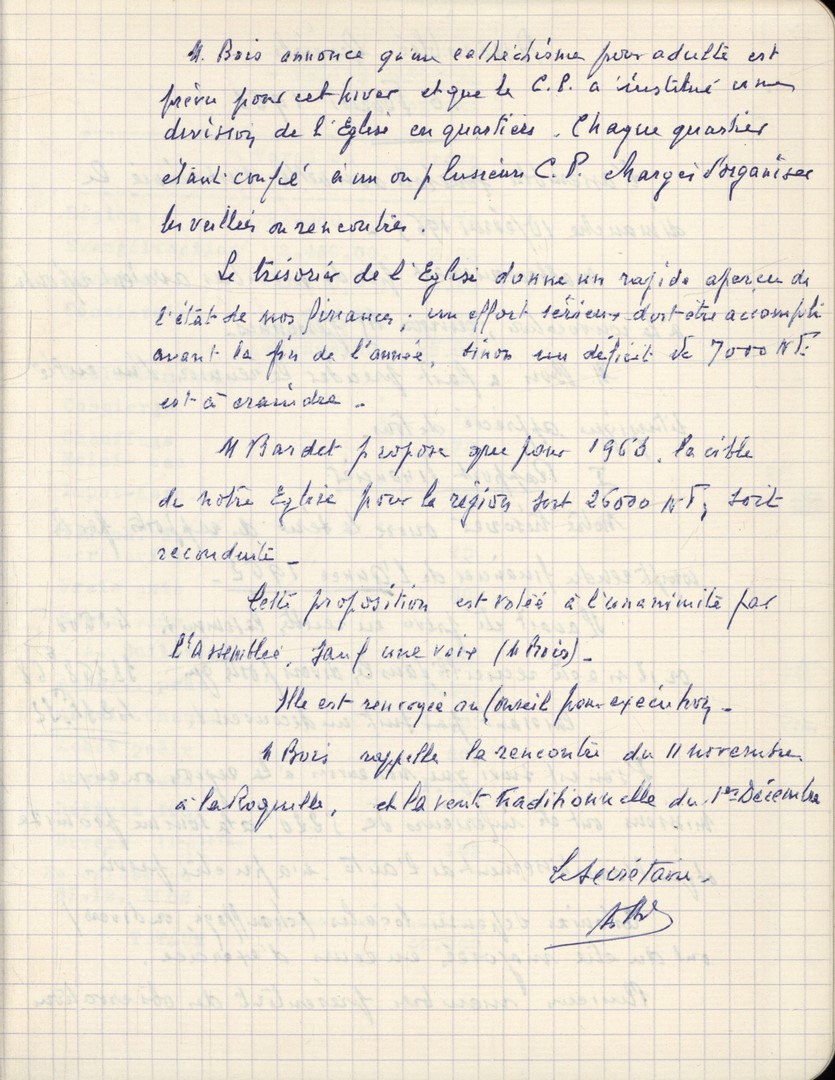 M. Bois annonce qu'un cathéchisme pour adulte est
prévu pour cet hiver et que le C.P. a institué une
division de l'Eglise en quartiers. Chaque quartier
étant confié à un ou plusieurs C.P. chargés d'organiser
les veillées ou rencontres.
Le trésorier de l'Eglise donne un rapide aperçu de
l'état de nos finances; un effort sérieux doit être accompli
avant la fin de l'année, sinon un déficit de 7000 NF.
est à craindre.
M Bardet propose que pour 1963, la cible
de notre Eglise pour la région soit 26000 NF, soit
reconduite.
Cette proposition est votée à l'unanimité par
l'Assemblée, sauf une voix (M Bois).
Elle est renvoyée au Conseil pour exécution.
M Bois rappelle la rencontre du 11 novembre
à la Roquille, et la vente traditionnelle du 1er Décembre
Le Secrétaire.